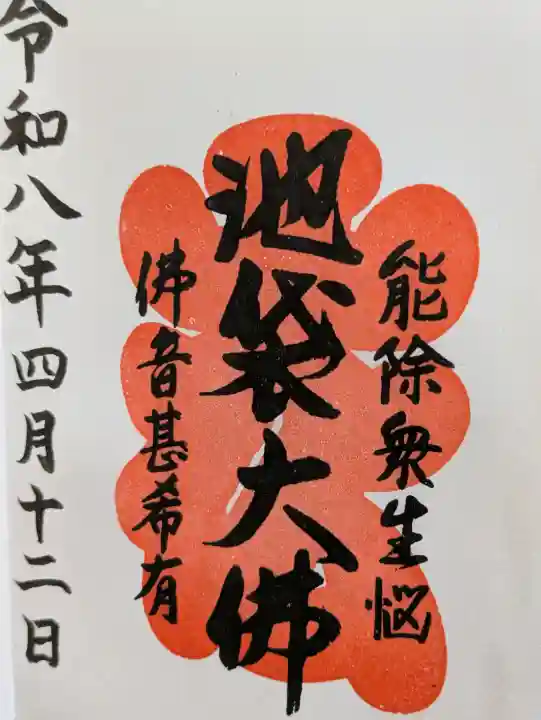 能除衆生悩
池袋大佛
佛音甚希有
令和八年四月十二日